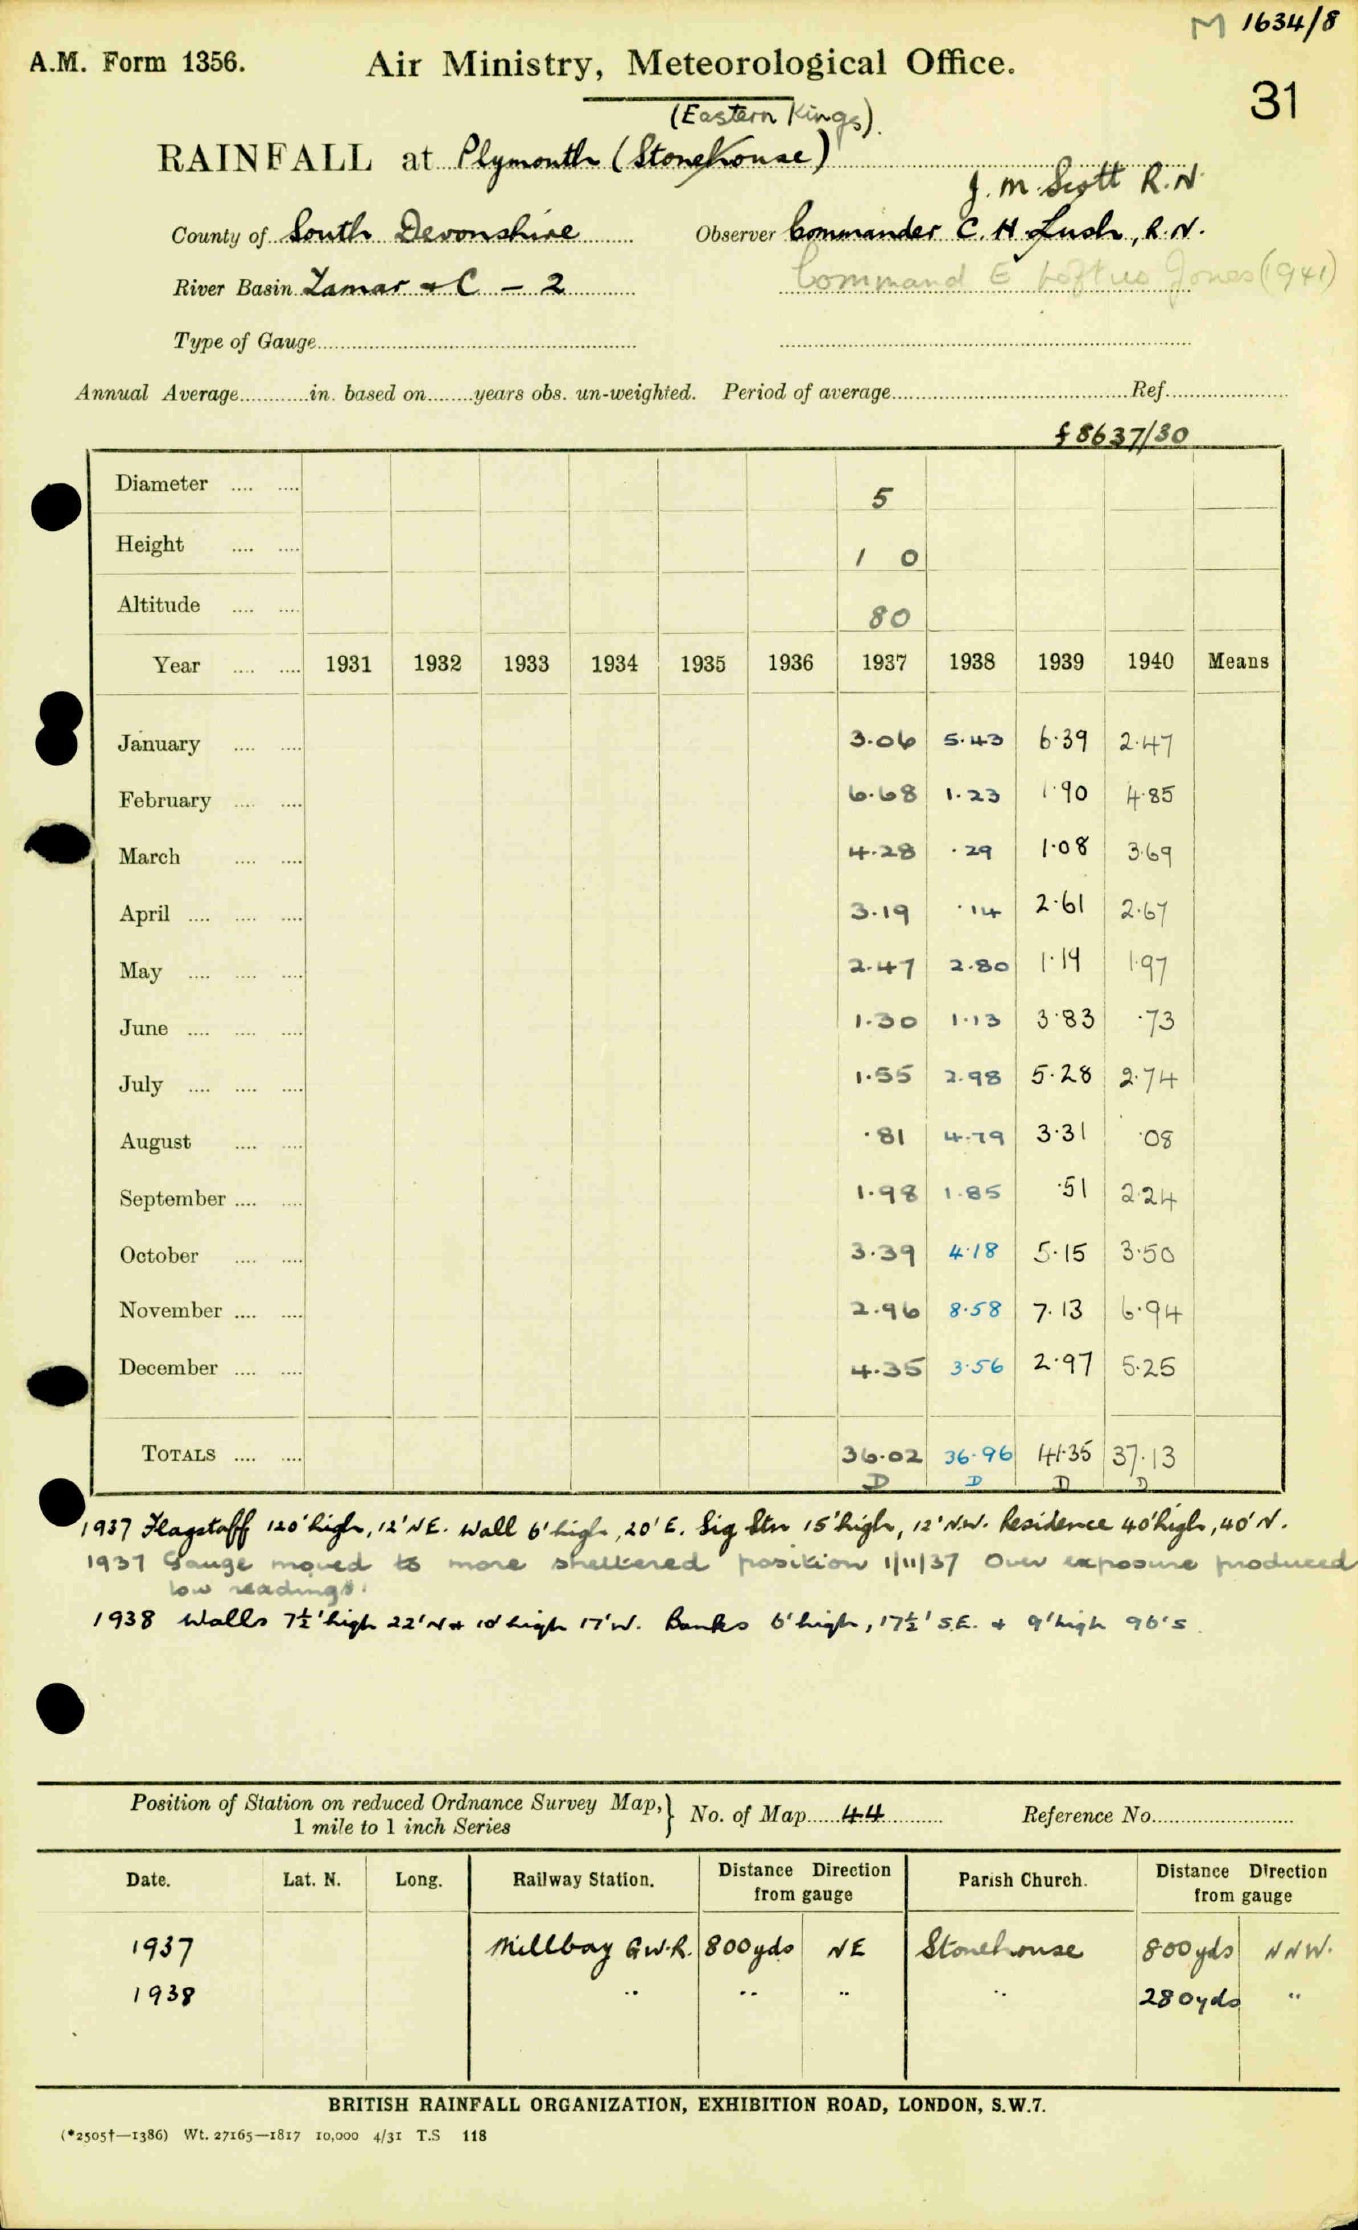 M 1634/8
A.M. Form 1356. Air Ministry, Meteorological Office.
31
(Eastern Kings).
RAINFALL at Plymouth (Stonehouse)
J. M. Scott R.N.
County of South Devonshire Observer Commander C. H. Lush, R.N.
River Basin Tamar & C - 2 Command E Loftus Jones (1941)
Type of Gauge
Annual Average in. based on years obs. un-weighted. Period of average Ref.
£8637/30
Diameter 5
Height 1 0
Altitude 80
Year 1931 1932 1933 1934 1935 1936 1937 1938 1939 1940 Means
January 3.06 5.43 6.39 2.47
February 6.68 1.23 1.90 4.85
March 4.28 .29 1.08 3.69
April 3.19 .14 2.61 2.67
May 2.47 2.80 1.19 1.97
June 1.30 1.13 3.83 .73
July 1.55 2.98 5.28 2.74
August .81 4.79 3.31 .08
September 1.98 1.85 .51 2.24
October 3.39 4.18 5.15 3.50
November 2.96 8.58 7.13 6.94
December 4.35 3.56 2.97 5.25
TOTALS 36.02 36.96 41.35 37.13
D D D D
1937 Flagstaff 120' high, 12' NE. Wall 6' high, 20' E. Sig Stn 15' high, 12' N.W. Residence 40' high, 40' N.
1937 Gauge moved to more sheltered position 1/11/37 Over exposure produced
low readings.
1938 Walls 7½' high 22' N & 10' high 17' W. Banks 6' high, 17½' S.E. & 9' high 96' S.
Position of Station on reduced Ordnance Survey Map, } No. of Map 44 Reference No.
1 mile to 1 inch Series
Date. Lat. N. Long. Railway Station. Distance Direction from gauge Parish Church. Distance Direction from gauge
1937 Millbay G.W.R. 800yds NE Stonehouse 800yds NNW.
1938 " " " " 280yds "
BRITISH RAINFALL ORGANIZATION, EXHIBITION ROAD, LONDON, S.W.7.
(*2505†—1386) Wt. 27165—1817 10,000 4/31 T.S 118